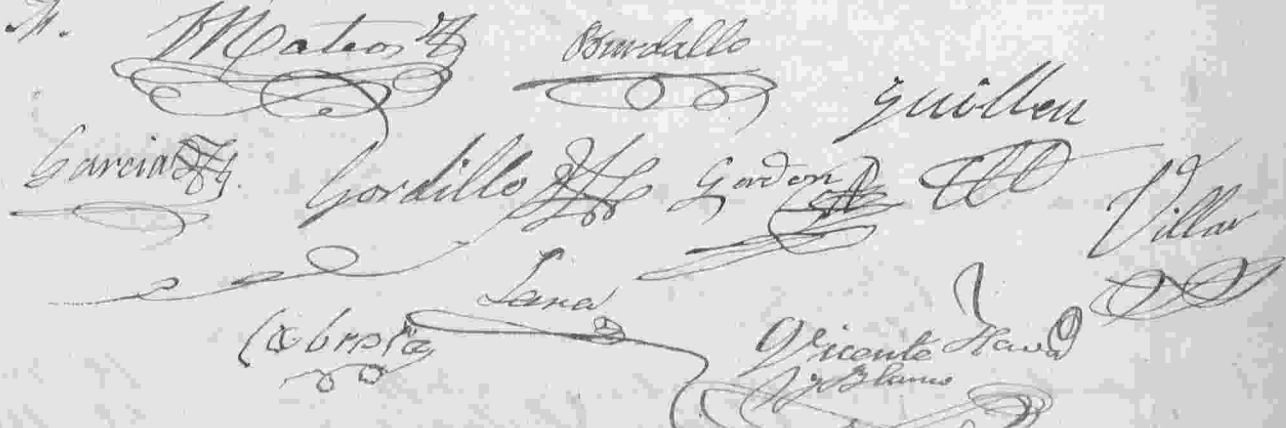 Mateos
Burdallo
Guillen
Garcia
Gordillo
Gordon
Villar
Lana
Vicente
y Blanco